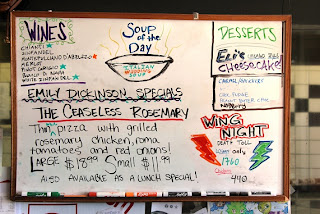 WINES
CHIANTI
ZINFANDEL
MONTEPULCIANO D'ABRUZZO
MERLOT
PINOT GRIGIO
WHITE ZINFANDEL
SOUP of the DAY
ITALIAN
WEDDING SOUP
DESSERTS
CHEESECAKE!
EMILY DICKINSON SPECIALS
THE CEASELESS ROSEMARY
Thin pizza with grilled
rosemary chicken, roma
tomatoes and red onions!
LARGE $18.99 SMALL $11.99
ALSO AVAILABLE AS A LUNCH SPECIAL!
WING
NIGHT
DEATH TOLL
only
1760
440